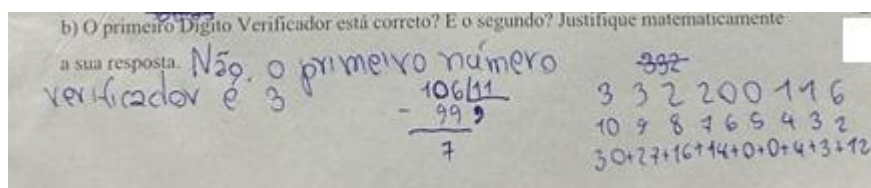 b) O primeiro Dígito Verificador está correto? E o segundo? Justifique matematicamente
a sua resposta. Não, o primeiro número
verificador é 3
106 11
- 99 9
7
332
3 3 2 2 0 0 1 1 6
10 9 8 7 6 5 4 3 2
30+27+16+14+0+0+4+3+12